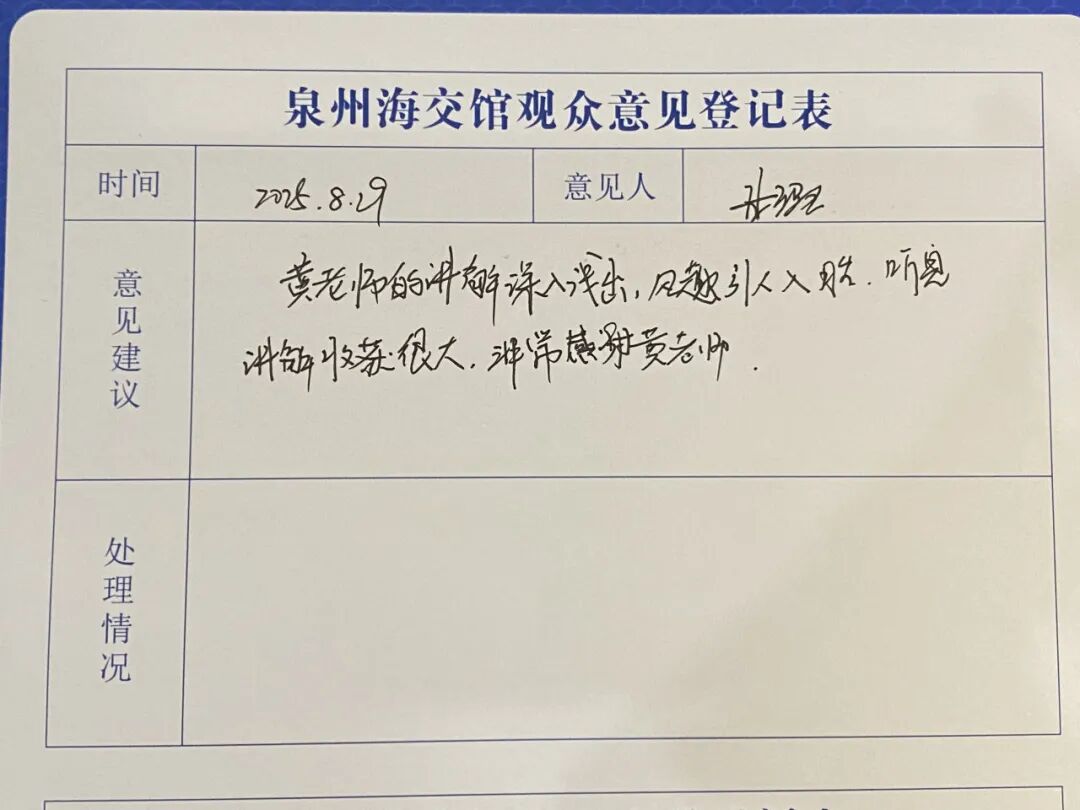 泉州海交馆观众意见登记表
时间 2025.8.29 意见人
意见建议
黄老师的讲解深入浅出,风趣引人入胜.听
讲解收获很大,非常感谢黄老师.
处理情况